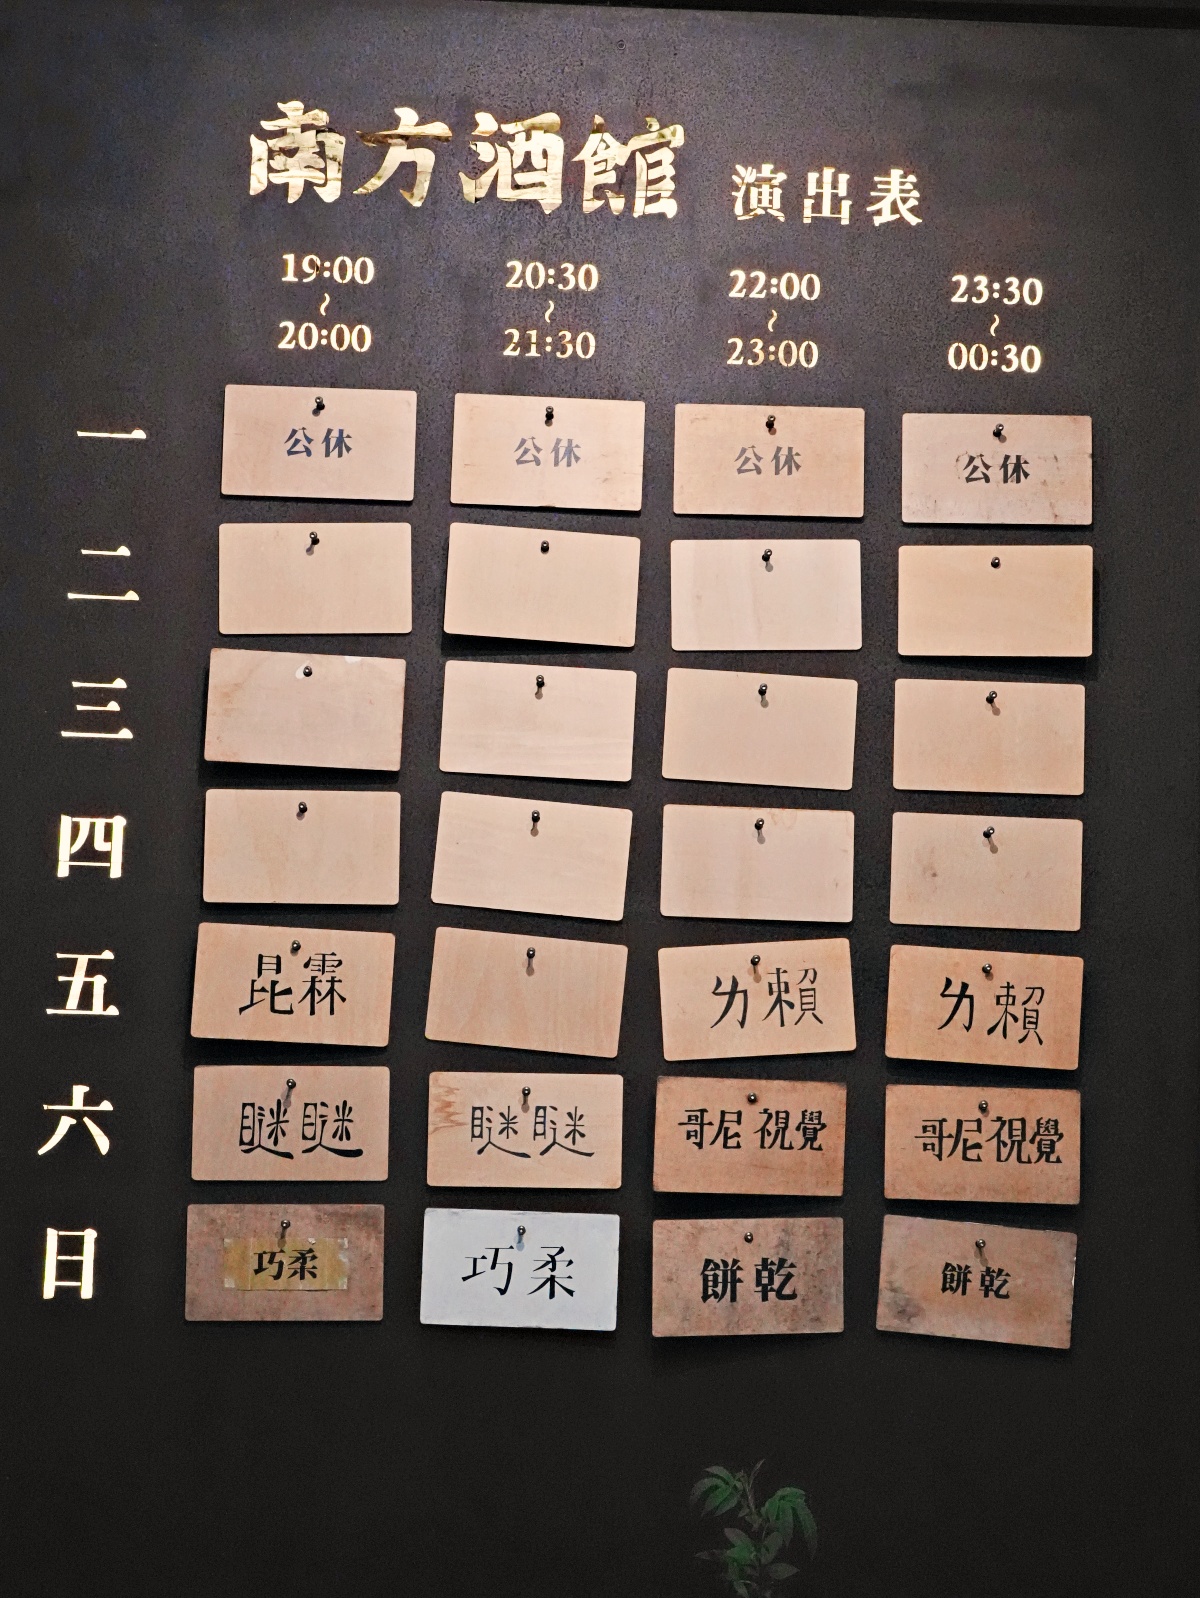 南方酒館 演出表
19:00 20:30 22:00 23:30
~ ~ ~ ~
20:00 21:30 23:00 00:30
一 公休 公休 公休 公休
二
三
四
五 昆霖 ㄌ賴 ㄌ賴
六 瞇瞇 瞇瞇 哥尼 視覺 哥尼視覺
日 巧柔 巧柔 餅乾 餅乾